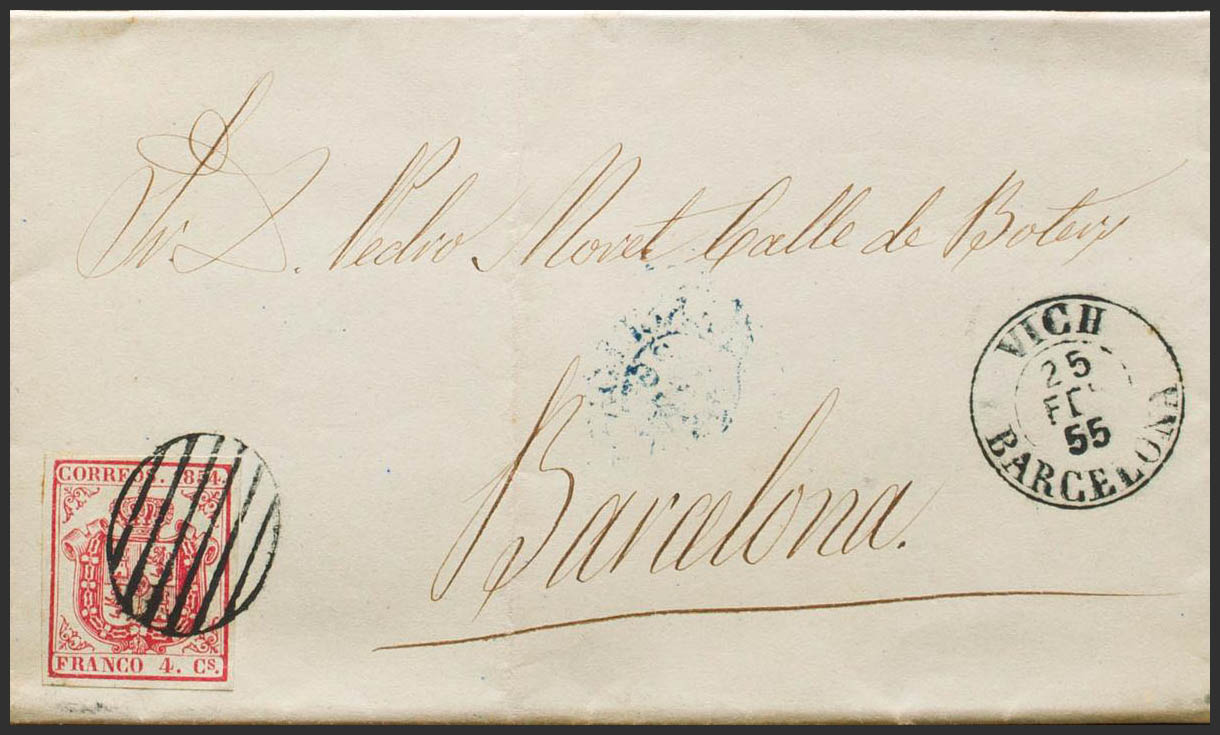 Sr. D. Pedro Moret Calle de Boters
Barcelona.
VICH
25
55
BARCELONA
CORREOS. 1854.
FRANCO 4. Cs.